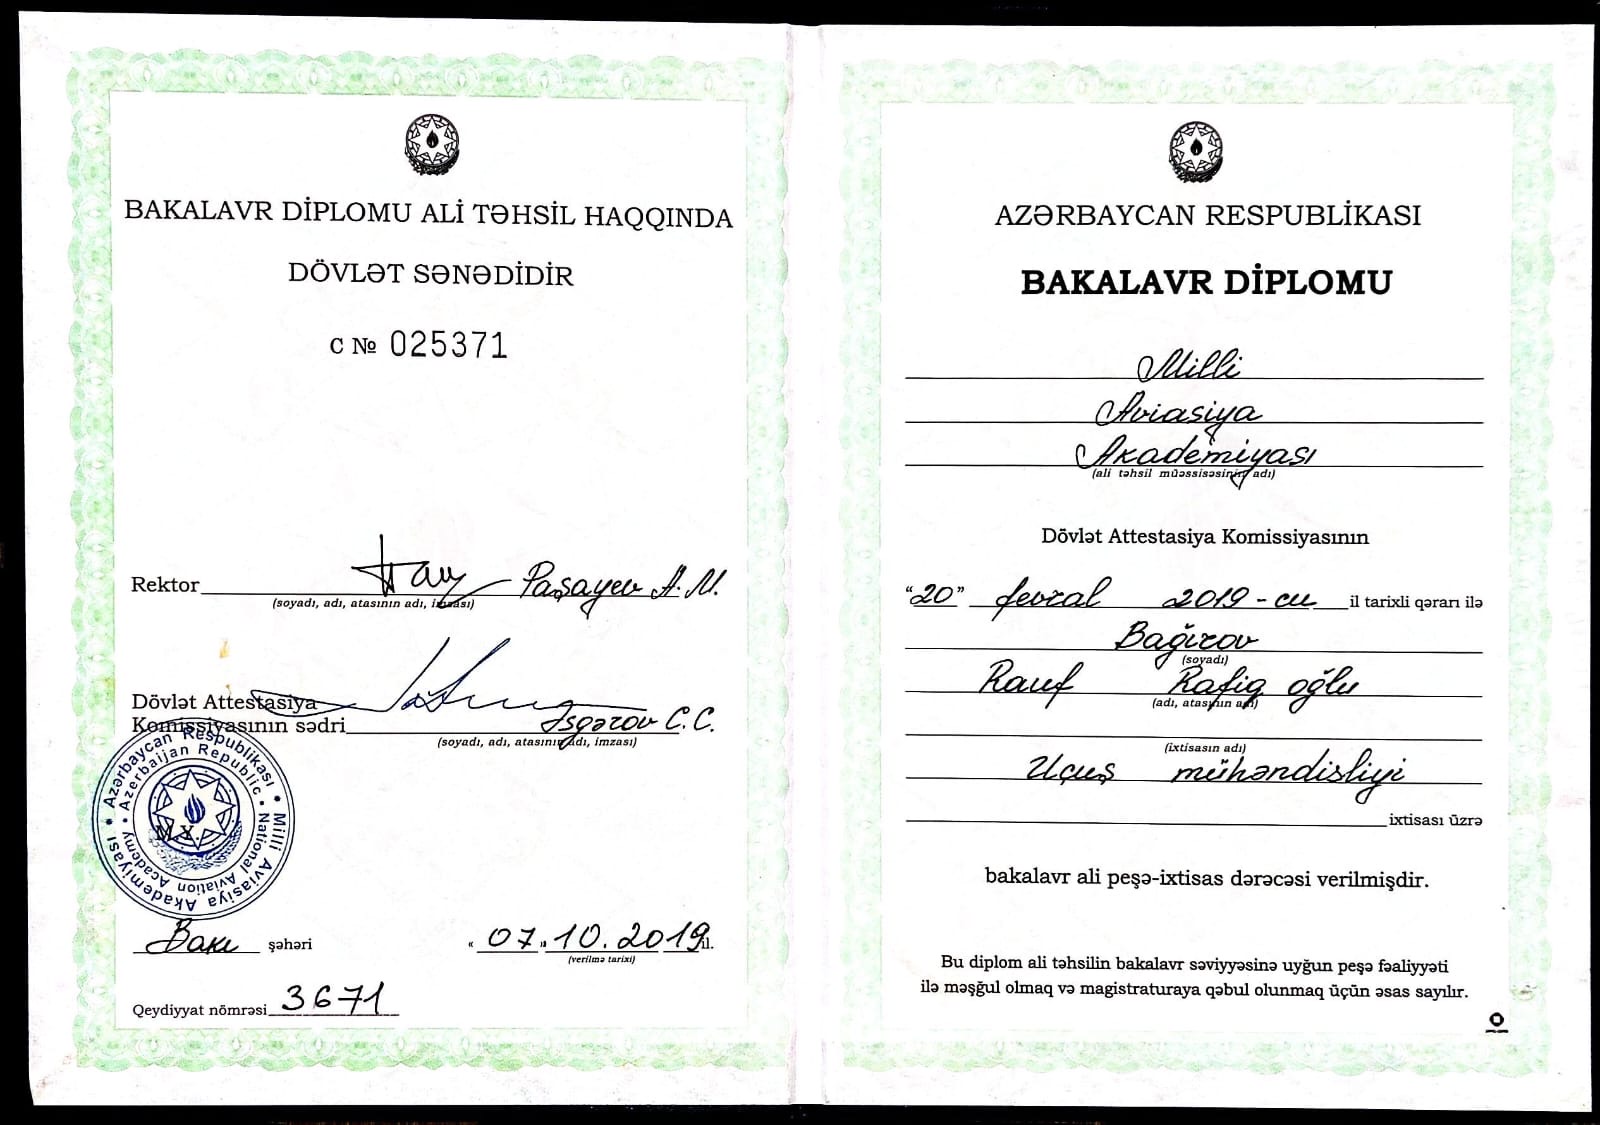 BAKALAVR DİPLOMU ALİ TƏHSİL HAQQINDA
DÖVLƏT SƏNƏDİDİR
C № 025371
Rektor Paşayev A.M.
(soyadı, adı, atasının adı, imzası)
Dövlət Attestasiya
Komissiyasının sədri Əsgərov C.C.
(soyadı, adı, atasının adı, imzası)
Azərbaycan Respublikası • Milli Aviasiya Akademiyası •
Azerbaijan Republic • National Aviation Academy •
M.Y.
Bakı şəhəri
« 07 » 10. 2019 il.
(verilmə tarixi)
Qeydiyyat nömrəsi 3671
AZƏRBAYCAN RESPUBLİKASI
BAKALAVR DİPLOMU
Milli
Aviasiya
Akademiyası
(ali təhsil müəssisəsinin adı)
Dövlət Attestasiya Komissiyasının
“20” fevral 2019-cu il tarixli qərarı ilə
Bağırov
(soyadı)
Rauf Rafiq oğlu
(adı, atasının adı)
(ixtisasın adı)
Uçuş mühəndisliyi
ixtisası üzrə
bakalavr ali peşə-ixtisas dərəcəsi verilmişdir.
Bu diplom ali təhsilin bakalavr səviyyəsinə uyğun peşə fəaliyyəti
ilə məşğul olmaq və magistraturaya qəbul olunmaq üçün əsas sayılır.